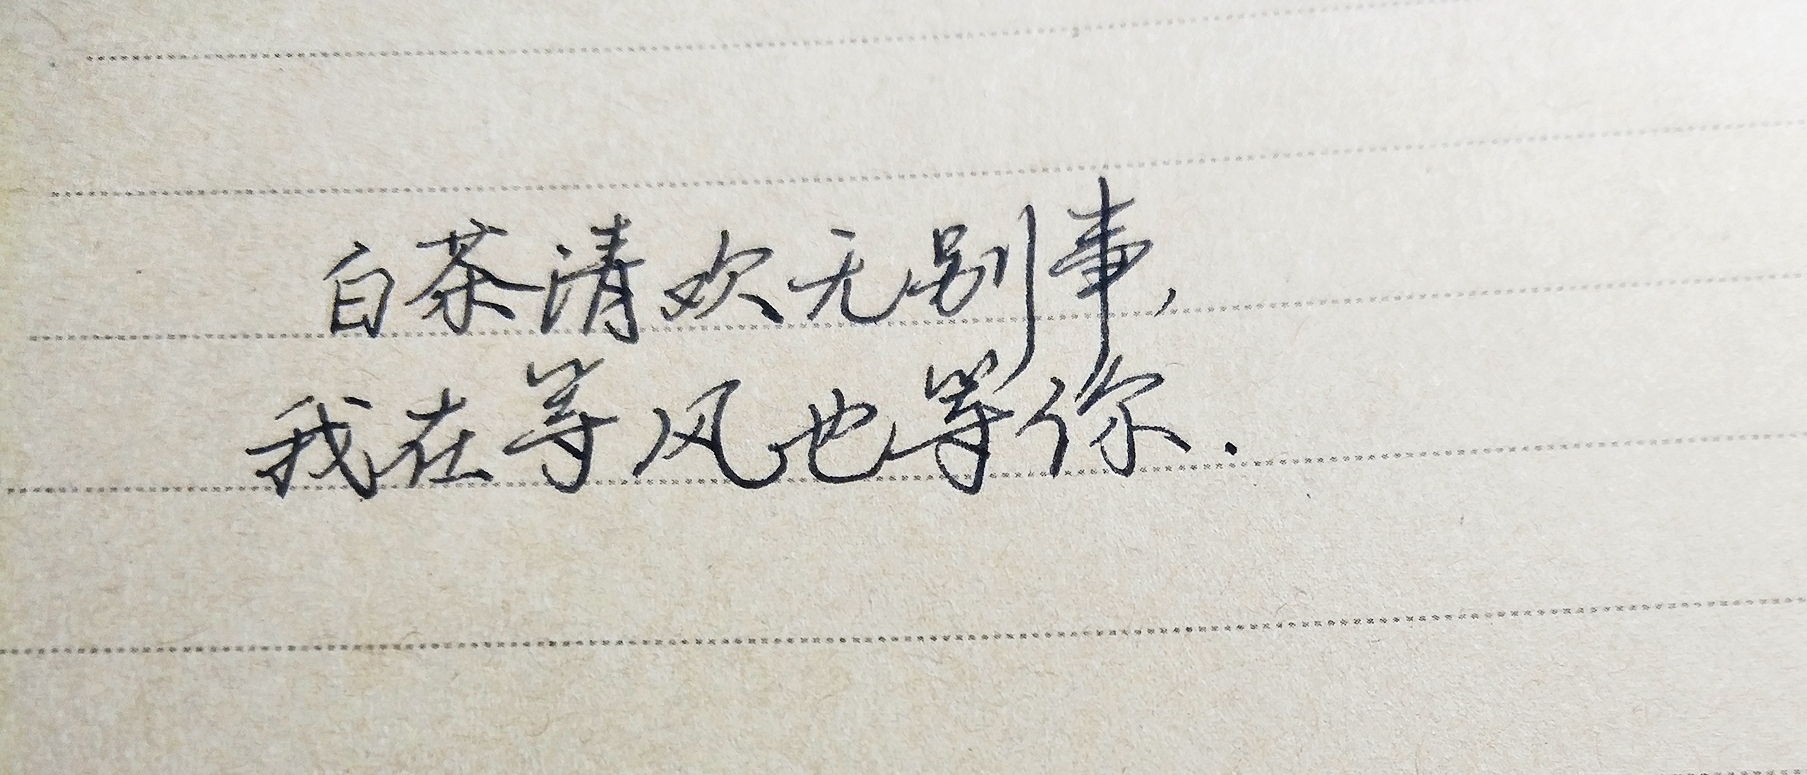 白茶清欢无别事,
我在等风也等你.